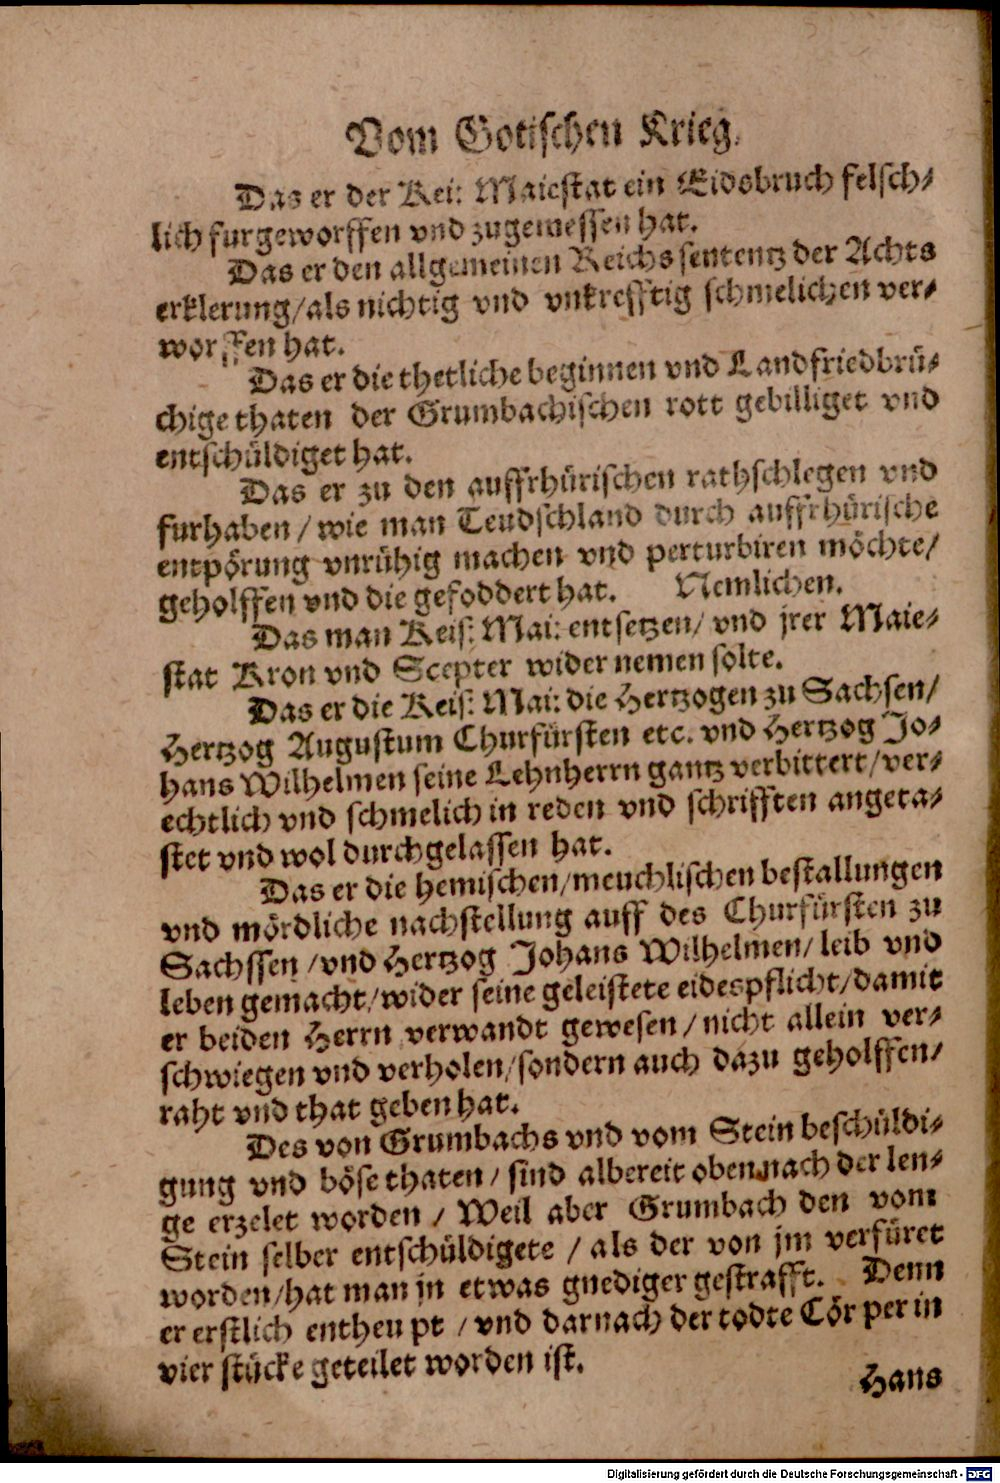 Vom Gotischen Krieg.
Das er der Kei: Maiestat ein Eidsbruch felsch-
lich furgeworffen vnd zugemessen hat.
Das er den allgemeinen Reichs sententz der Achts
erklerung/als nichtig vnd vnkrefftig schmelichen ver-
worffen hat.
Das er die thetliche beginnen vnd Landfriedbrü-
chige thaten der Grumbachischen rott gebilliget vnd
entschüldiget hat.
Das er zu den auffrhürischen rathschlegen vnd
furhaben / wie man Teudschland durch auffrhürische
entpörung vnrühig machen vnd perturbiren möchte/
geholffen vnd die gefoddert hat. Nemlichen.
Das man Keis: Mai: entsetzen/ vnd jrer Maie-
stat Kron vnd Scepter wider nemen solte.
Das er die Keis: Mai: die Hertzogen zu Sachsen/
Hertzog Augustum Churfürsten etc. vnd Hertzog Jo-
hans Wilhelmen seine Lehnherrn gantz verbittert/ver-
echtlich vnd schmelich in reden vnd schrifften angeta-
stet vnd wol durchgelassen hat.
Das er die hemischen/meuchlischen bestallungen
vnd mördliche nachstellung auff des Churfürsten zu
Sachssen /vnd Hertzog Johans Wilhelmen/ leib vnd
leben gemacht/wider seine geleistete eidespflicht/damit
er beiden Herrn verwandt gewesen / nicht allein ver-
schwiegen vnd verholen/sondern auch dazu geholffen/
raht vnd that geben hat.
Des von Grumbachs vnd vom Stein beschüldi-
gung vnd böse thaten / sind albereit oben nach der len-
ge erzelet worden / Weil aber Grumbach den vom
Stein selber entschüldigete / als der von jm verfüret
worden/hat man jn etwas gnediger gestrafft. Denn
er erstlich entheupt / vnd darnach der todte Cörper in
vier stücke geteilet worden ist.
Hans
Digitalisierung gefördert durch die Deutsche Forschungsgemeinschaft - DFG